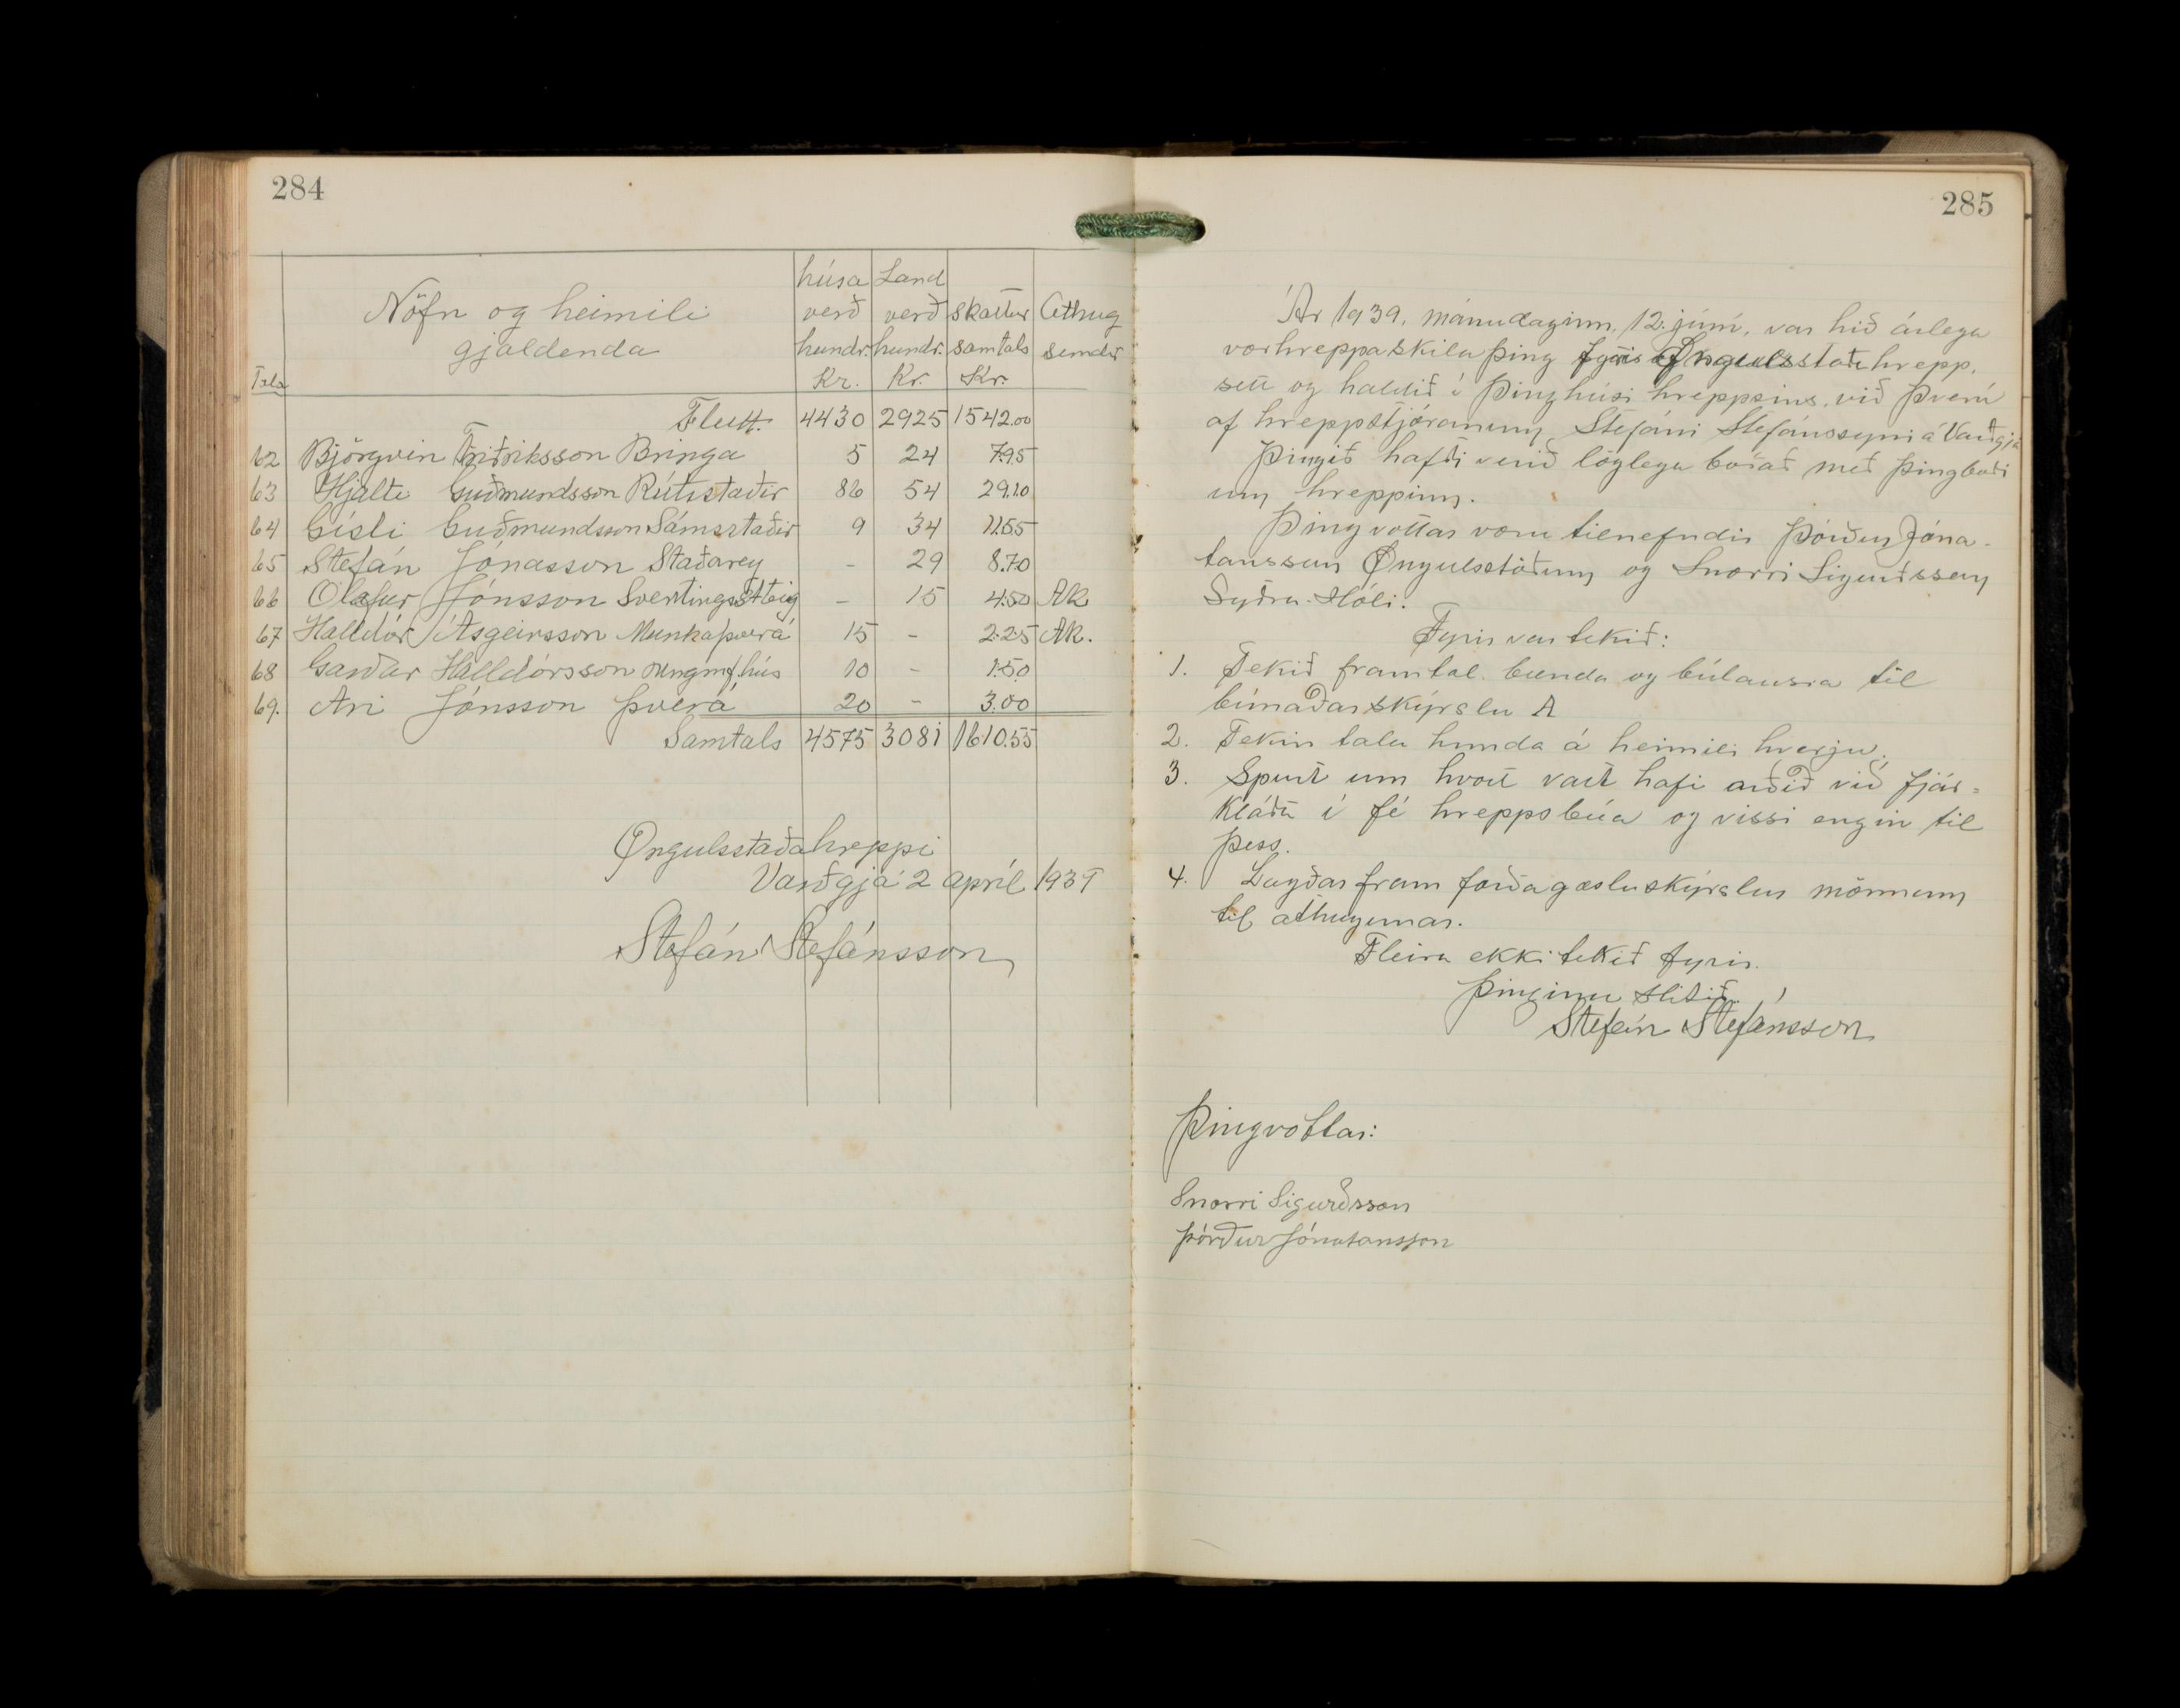 284
Tala
Nöfn og heimili
gjaldenda
húsa verð hundr. Kr.
Land verð hundr. Kr.
skattur samtals Kr.
Athug semdir
Flutt. 4430 2925 1542.00
62 Björgvin Friðriksson Bringa 5 24 7.95
63 Hjalti Guðmundsson Rútsstaðir 86 54 29.10
64 Gísli Guðmundsson Sámsstaðir 9 34 11.55
65 Stefán Jónasson Staðarey - 29 8.70
66 Olafur Jónsson Svertingsstbig - 15 4.50 AK
67 Halldór Ásgeirsson Munkaþverá 15 - 2.25 AK.
68 Garðar Halldórsson Ungmf.hús 10 - 1.50
69. Ari Jónsson Þverá 20 - 3.00
Samtals 4575 3081 1610.55
Øngulsstaðahreppi
Varðgjá 2 apríl 1939
Stefán Stefánsson
285
Ár 1939, mánudaginn, 12. júní, var hið árlega
vorhreppaskilaþing fyrir Øngulsstaðahrepp,
sett og haldið í Þinghúsi hreppsins við Þverá
af hreppstjóranum Stefáni Stefánssyni á Varðgjá
Þingið hafði verið löglega boðað með þingboði
um hreppinn.
Þingvottar voru tilnefndir Þórður Jóna-
tansson Øngulsstöðum og Snorri Sigurðsson
Syðra-Hóli.
Fyrir var tekið:
1. Tekið framtal bænda og búlausra til
búnaðarskýrslu A
2. Tekin tala hunda á heimili hverju.
3. Spurt um hvort vart hafi orðið við fjár-
kláða í fé hreppsbúa og vissi engin til
þess.
4. Lagðar fram forðagæsluskýrslur mönnum
til athugunar.
Fleira ekki tekið fyrir.
Þinginu slitið.
Stefán Stefánsson
Þingvottar:
Snorri Sigurðsson
Þórður Jónatansson